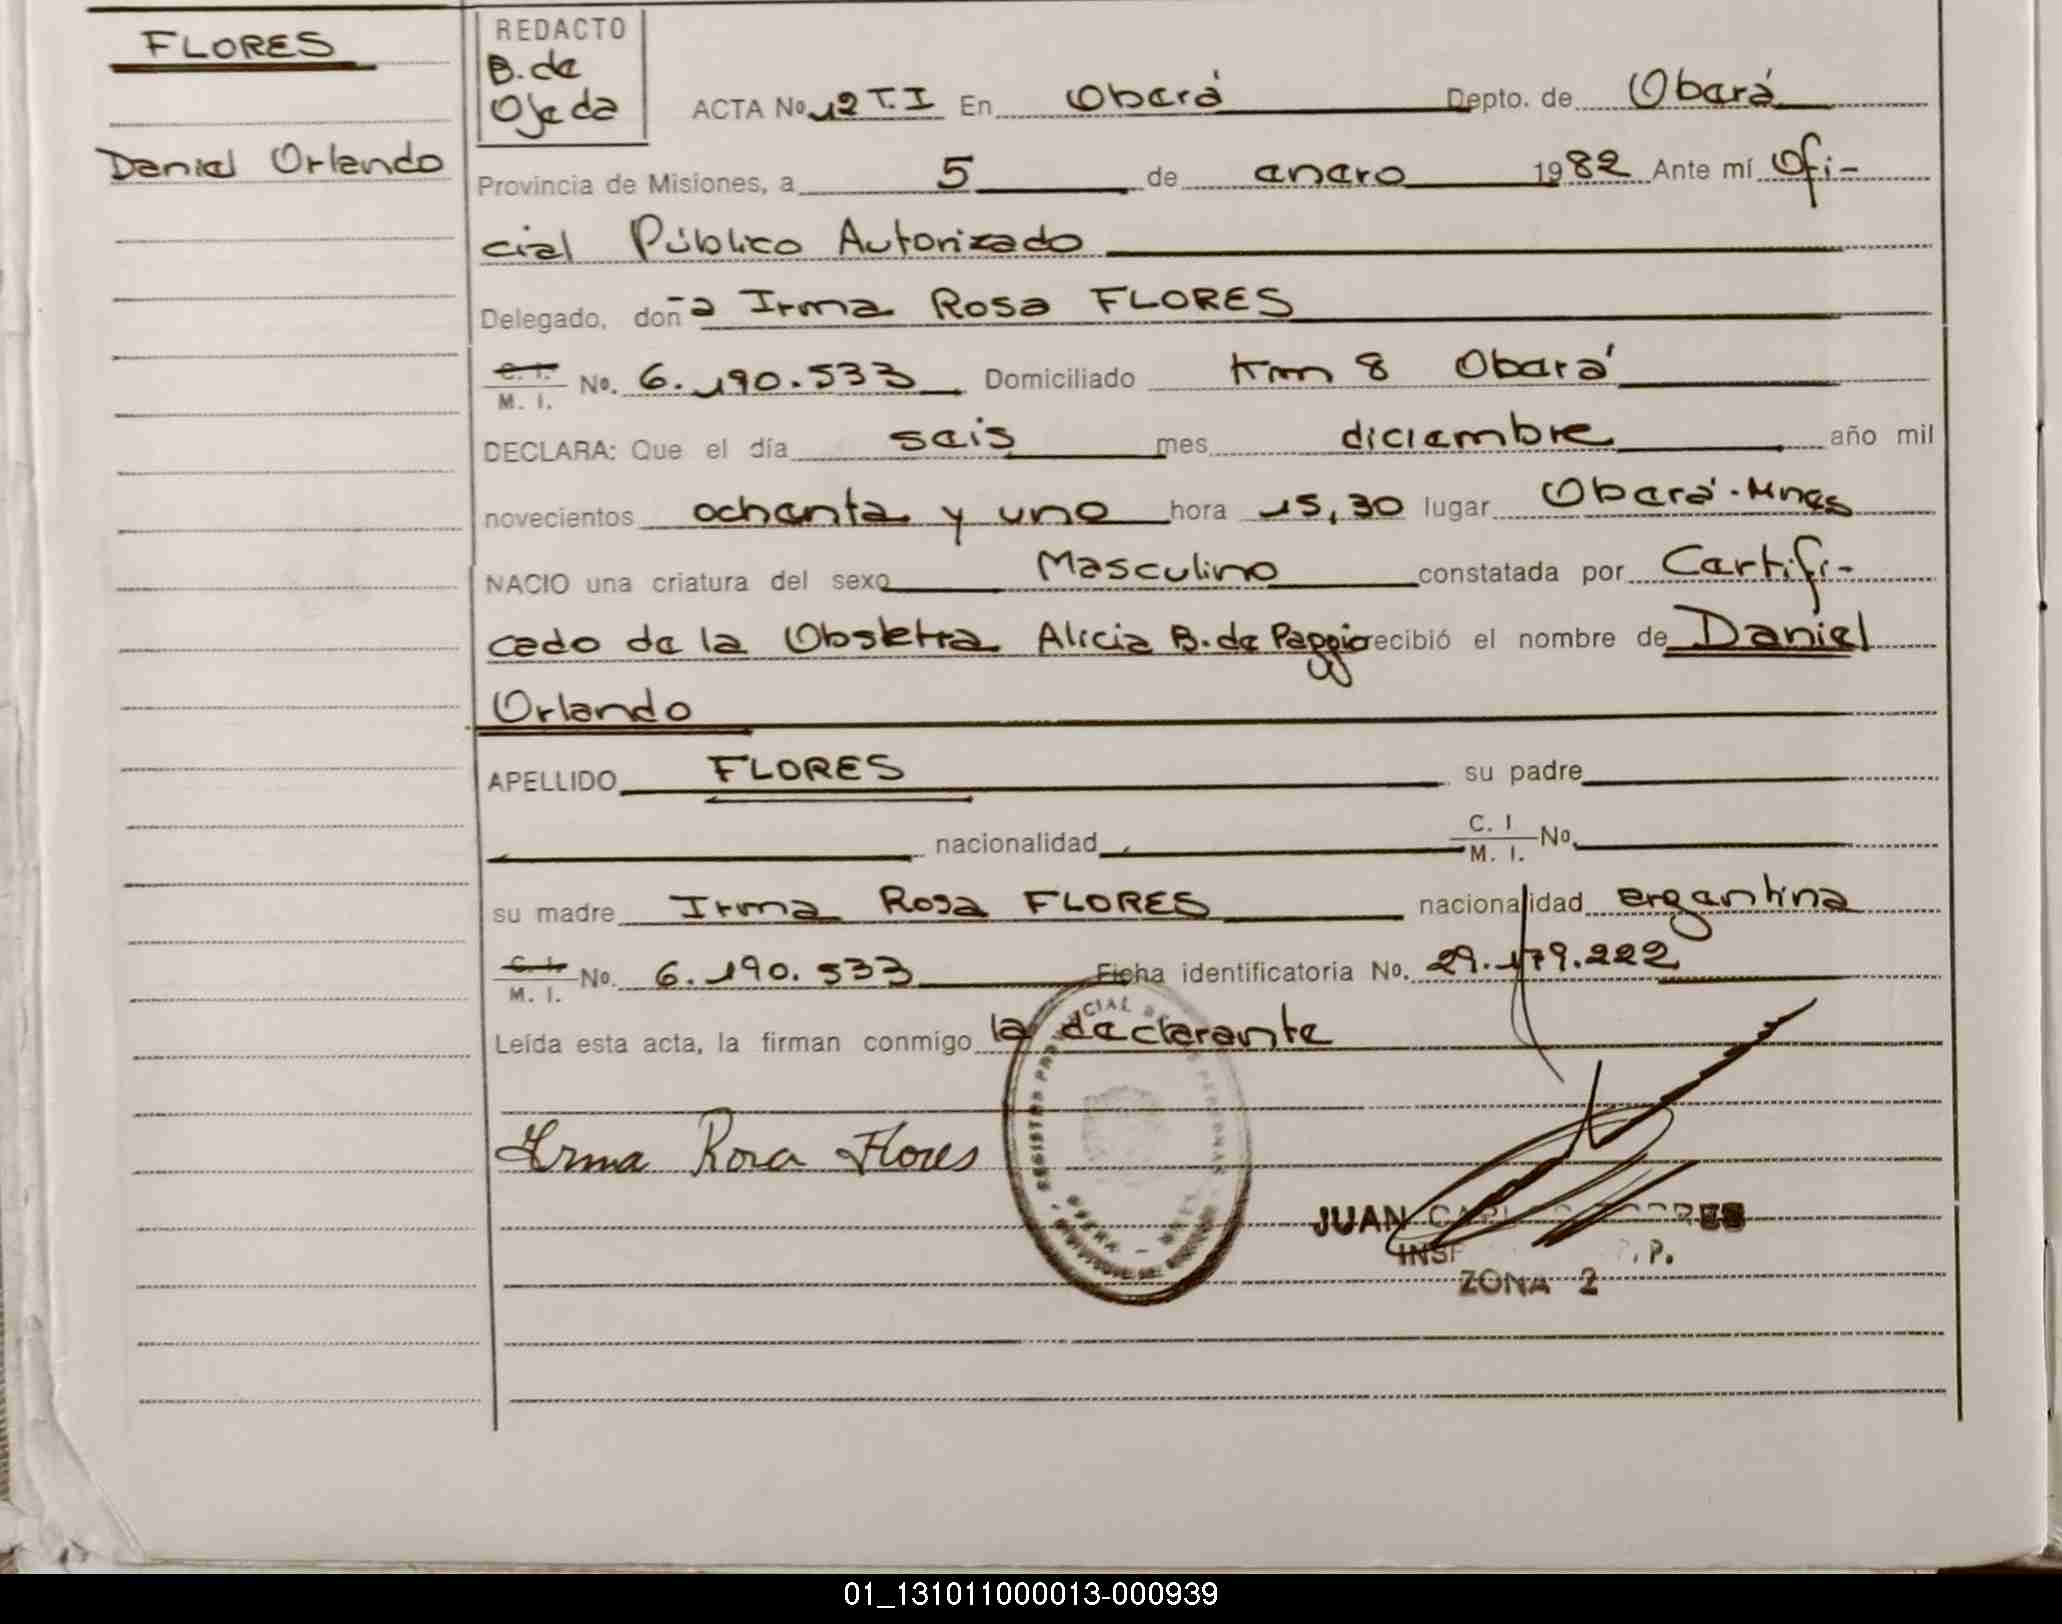 FLORES
Daniel Orlando
REDACTO
B. de
Ojeda
ACTA No. 12 T.I En Oberá Depto. de Oberá
Provincia de Misiones, a 5 de enero 1982 Ante mí Ofi-
cial Público Autorizado
Delegado, doña Irma Rosa FLORES
C. I. / M. I. No. 6.190.533 Domiciliado Km 8 Oberá
DECLARA: Que el día seis mes diciembre año mil
novecientos ochenta y uno hora 15,30 lugar Oberá-Mnes
NACIO una criatura del sexo Masculino constatada por Certifi-
cado de la Obstetra Alicia B. de Poggio recibió el nombre de Daniel
Orlando
APELLIDO FLORES su padre
nacionalidad C. I / M. I. No.
su madre Irma Rosa FLORES nacionalidad argentina
C. I. / M. I. No. 6.190.533 Ficha identificatoria No. 29.179.222
Leída esta acta, la firman conmigo la declarante
Irma Rosa Flores
REGISTRO PROVINCIAL DE PERSONAS
OBERA
JUAN CARLOS
ZONA 2
01_131011000013-000939